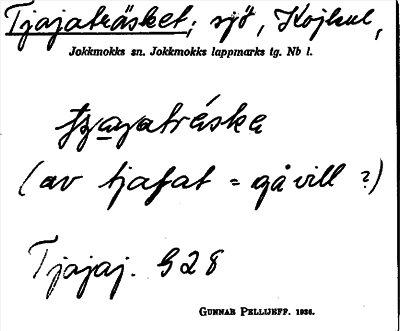 Tjajaträsket; sjö, Kojkul,
Jokkmokks sn. Jokkmokks lappmarks tg. Nb l.
(av tjafat = gå vill?)
Tjajaj. G28
GUNNAR PELLIJEFF. 1936.